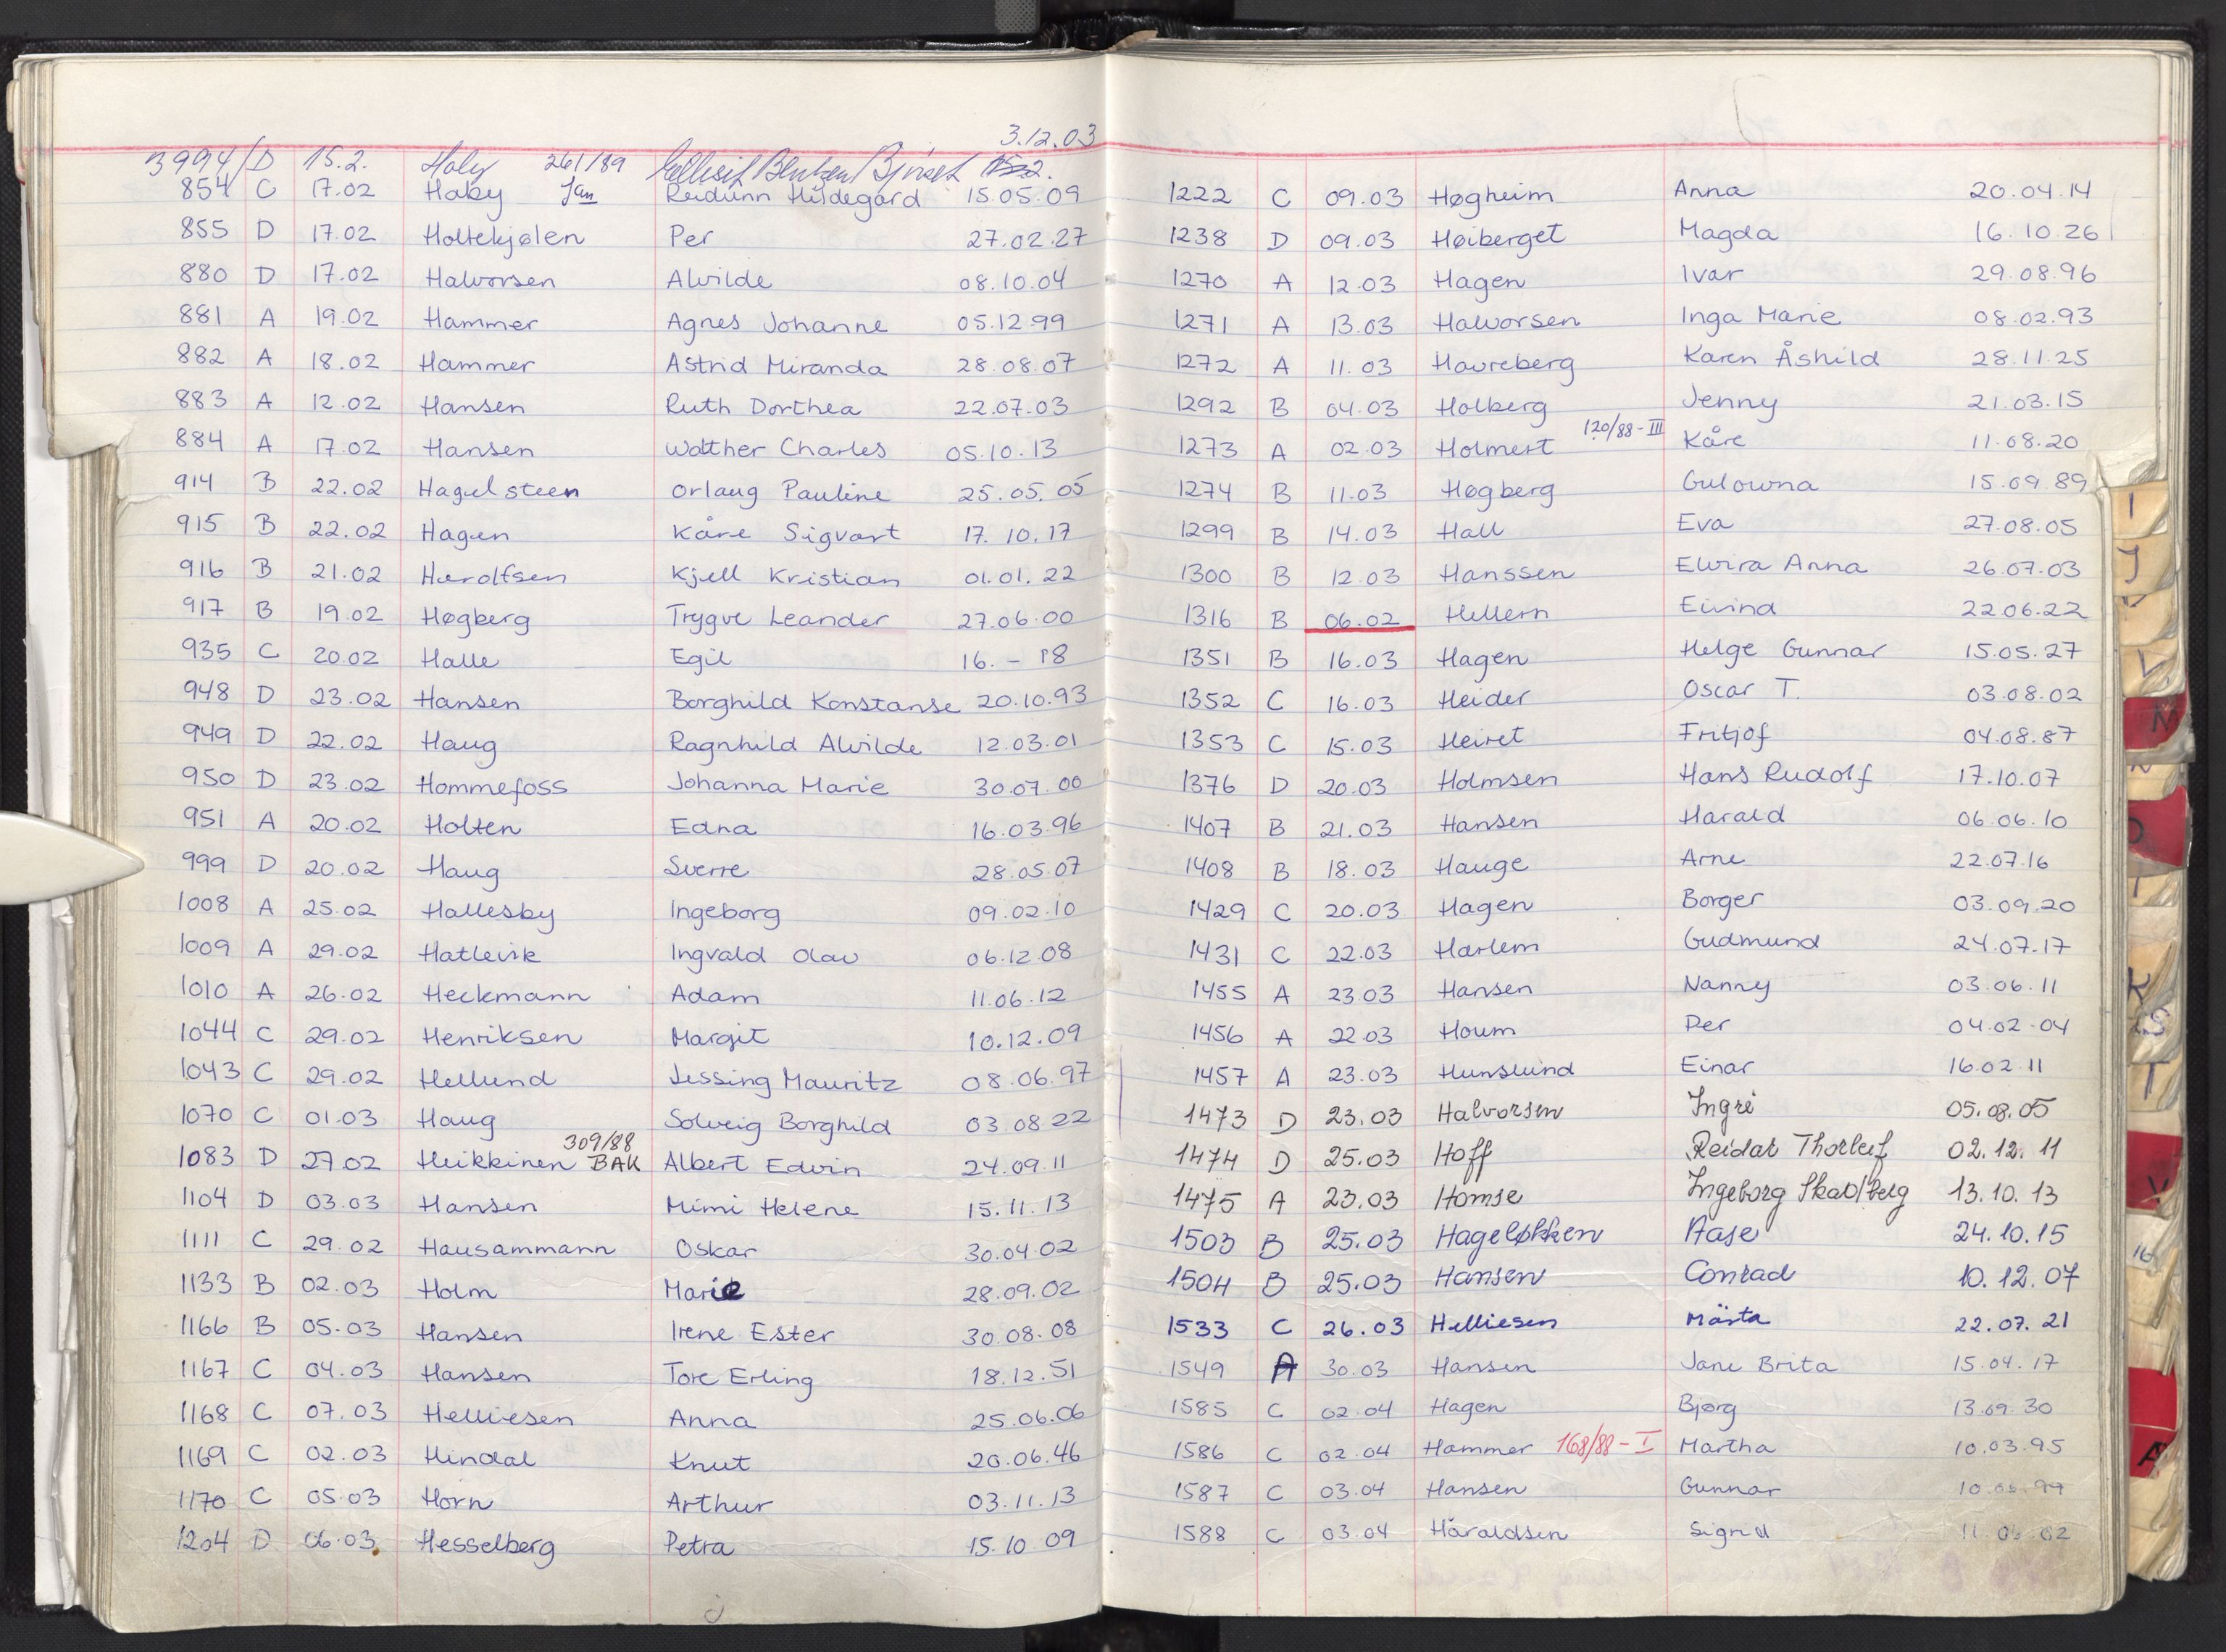 3.12.03
3994/D 15.2. Holy 261/89
854 C 17.02 Haby Jan Reidunn Hildegard 15.05.09
855 D 17.02 Holtekjølen Per 27.02.27
880 D 17.02 Halvorsen Alvilde 08.10.04
881 A 19.02 Hammer Agnes Johanne 05.12.99
882 A 18.02 Hammer Astrid Miranda 28.08.07
883 A 12.02 Hansen Ruth Dorthea 22.07.03
884 A 17.02 Hansen Walther Charles 05.10.13
914 B 22.02 Hagelsteen Orlaug Pauline 25.05.05
915 B 22.02 Hagen Kåre Sigvart 17.10.17
916 B 21.02 Herolfsen Kjell Kristian 01.01.22
917 B 19.02 Høgberg Trygve Leander 27.06.00
935 C 20.02 Halle Egil 16. – 18
948 D 23.02 Hansen Borghild Konstanse 20.10.93
949 D 22.02 Haug Ragnhild Alvilde 12.03.01
950 D 23.02 Hommefoss Johanna Marie 30.07.00
951 A 20.02 Holten Edna 16.03.96
999 D 20.02 Haug Sverre 28.05.07
1008 A 25.02 Hallesby Ingeborg 09.02.10
1009 A 29.02 Hatlevik Ingvald Olav 06.12.08
1010 A 26.02 Heckmann Adam 11.06.12
1044 C 29.02 Henriksen Margit 10.12.09
1043 C 29.02 Hellund Lessing Mauritz 08.06.97
1070 C 01.03 Haug Solveig Borghild 03.08.22
309/88
1083 D 27.02 Heikkinen BAK Albert Edvin 24.09.11
1104 D 03.03 Hansen Mimi Helene 15.11.13
1111 C 29.02 Hausammann Oskar 30.04.02
1133 B 02.03 Holm Marie 28.09.02
1166 B 05.03 Hansen Irene Ester 30.08.08
1167 C 04.03 Hansen Tore Erling 18.12.51
1168 C 07.03 Helliesen Anna 25.06.06
1169 C 02.03 Hindal Knut 20.06.46
1170 C 05.03 Horn Arthur 03.11.13
1204 D 06.03 Hesselberg Petra 15.10 09
1222 C 09.03 Høgheim Anna 20.04.14
1238 D 09.03 Høiberget Magda 16.10.26
1270 A 12.03 Hagen Ivar 29.08.96
1271 A 13.03 Halvorsen Inga Marie 08.02.93
1272 A 11.03 Havreberg Karen Åshild 28.11.25
1292 B 04.03 Holberg Jenny 21.03.15
1273 A 02.03 Holmert 120/88-III Kåre 11.08.20
1274 B 11.03 Høgberg Gulowna 15.09.89
1299 B 14.03 Hall Eva 27.08.05
1300 B 12.03 Hanssen Elvira Anna 26.07.03
1316 B 06.02 Hellern Eivind 22.06.22
1351 B 16.03 Hagen Helge Gunnar 15.05.27
1352 C 16.03 Heider Oscar T. 03.08.02
1353 C 15.03 Heiret Fritjof 04.08.87
1376 D 20.03 Holmsen Hans Rudolf 17.10.07
1407 B 21.03 Hansen Harald 06.06.10
1408 B 18.03 Hauge Arne 22.07.16
1429 C 20.03 Hagen Borger 03.09.20
1431 C 22.03 Harlem Gudmund 24.07.17
1455 A 23.03 Hansen Nanny 03.06.11
1456 A 22.03 Houm Per 04.02.04
1457 A 23.03 Hunslund Einar 16.02.11
1473 D 23.03 Halvorsen Ingri 05.08.05
1474 D 25.03 Hoff Reidar Thorleif 02.12.11
1475 A 23.03 Homse Ingeborg 13.10.13
1503 B 25.03 Hageløkken Aase 24.10.15
1504 B 25.03 Hansen Conrad 10.12.07
1533 C 26.03 Helliesen Märta 22.07.21
1549 A 30.03 Hansen Jane Brita 15.04.17
1585 C 02.04 Hagen Bjørg 13.09.30
1586 C 02.04 Hammer 168/88-I Martha 10.03.95
1587 C 03.04 Hansen Gunnar
1588 C 03.04 Haraldsen Sigrid
I
J
L
M
T